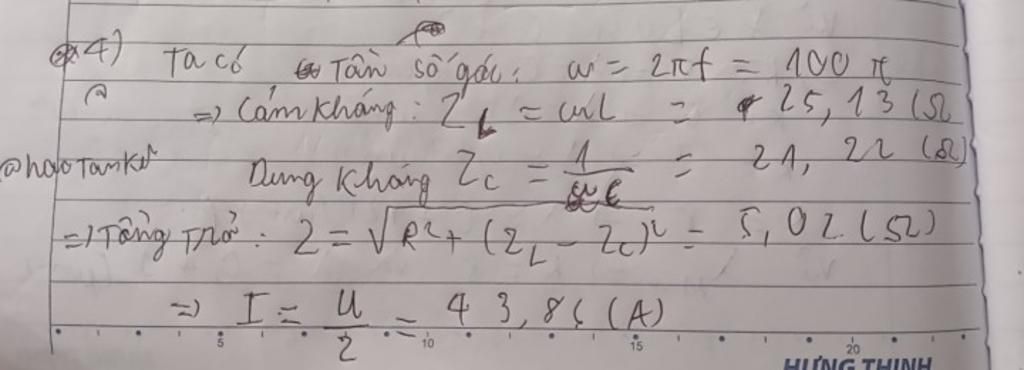 4) Ta có Tần số góc: ω = 2πf = 100 π
a
=> Cảm kháng: Z_L = ωL = 25,13 (Ω
@haotamkv Dung kháng Z_C = 1/ωC = 21,22 (Ω)
=> Tổng trở: Z = √R² + (Z_L - Z_C)² = 5,02 (Ω)
=> I = U/Z = 43,8 (A)
5 10 15 20
HƯNG THỊNH